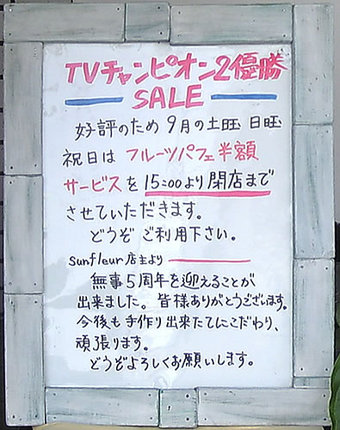 TVチャンピオン2優勝
SALE
好評のため 9月の土曜 日曜
祝日は フルーツパフェ半額
サービスを 15:00より閉店まで
させていただきます。
どうぞ ご利用下さい。
sunfleur 店主より
無事5周年を迎えることが
出来ました。皆様ありがとうございます。
今後も手作り出来たてにこだわり、
頑張ります。
どうぞよろしくお願いします。